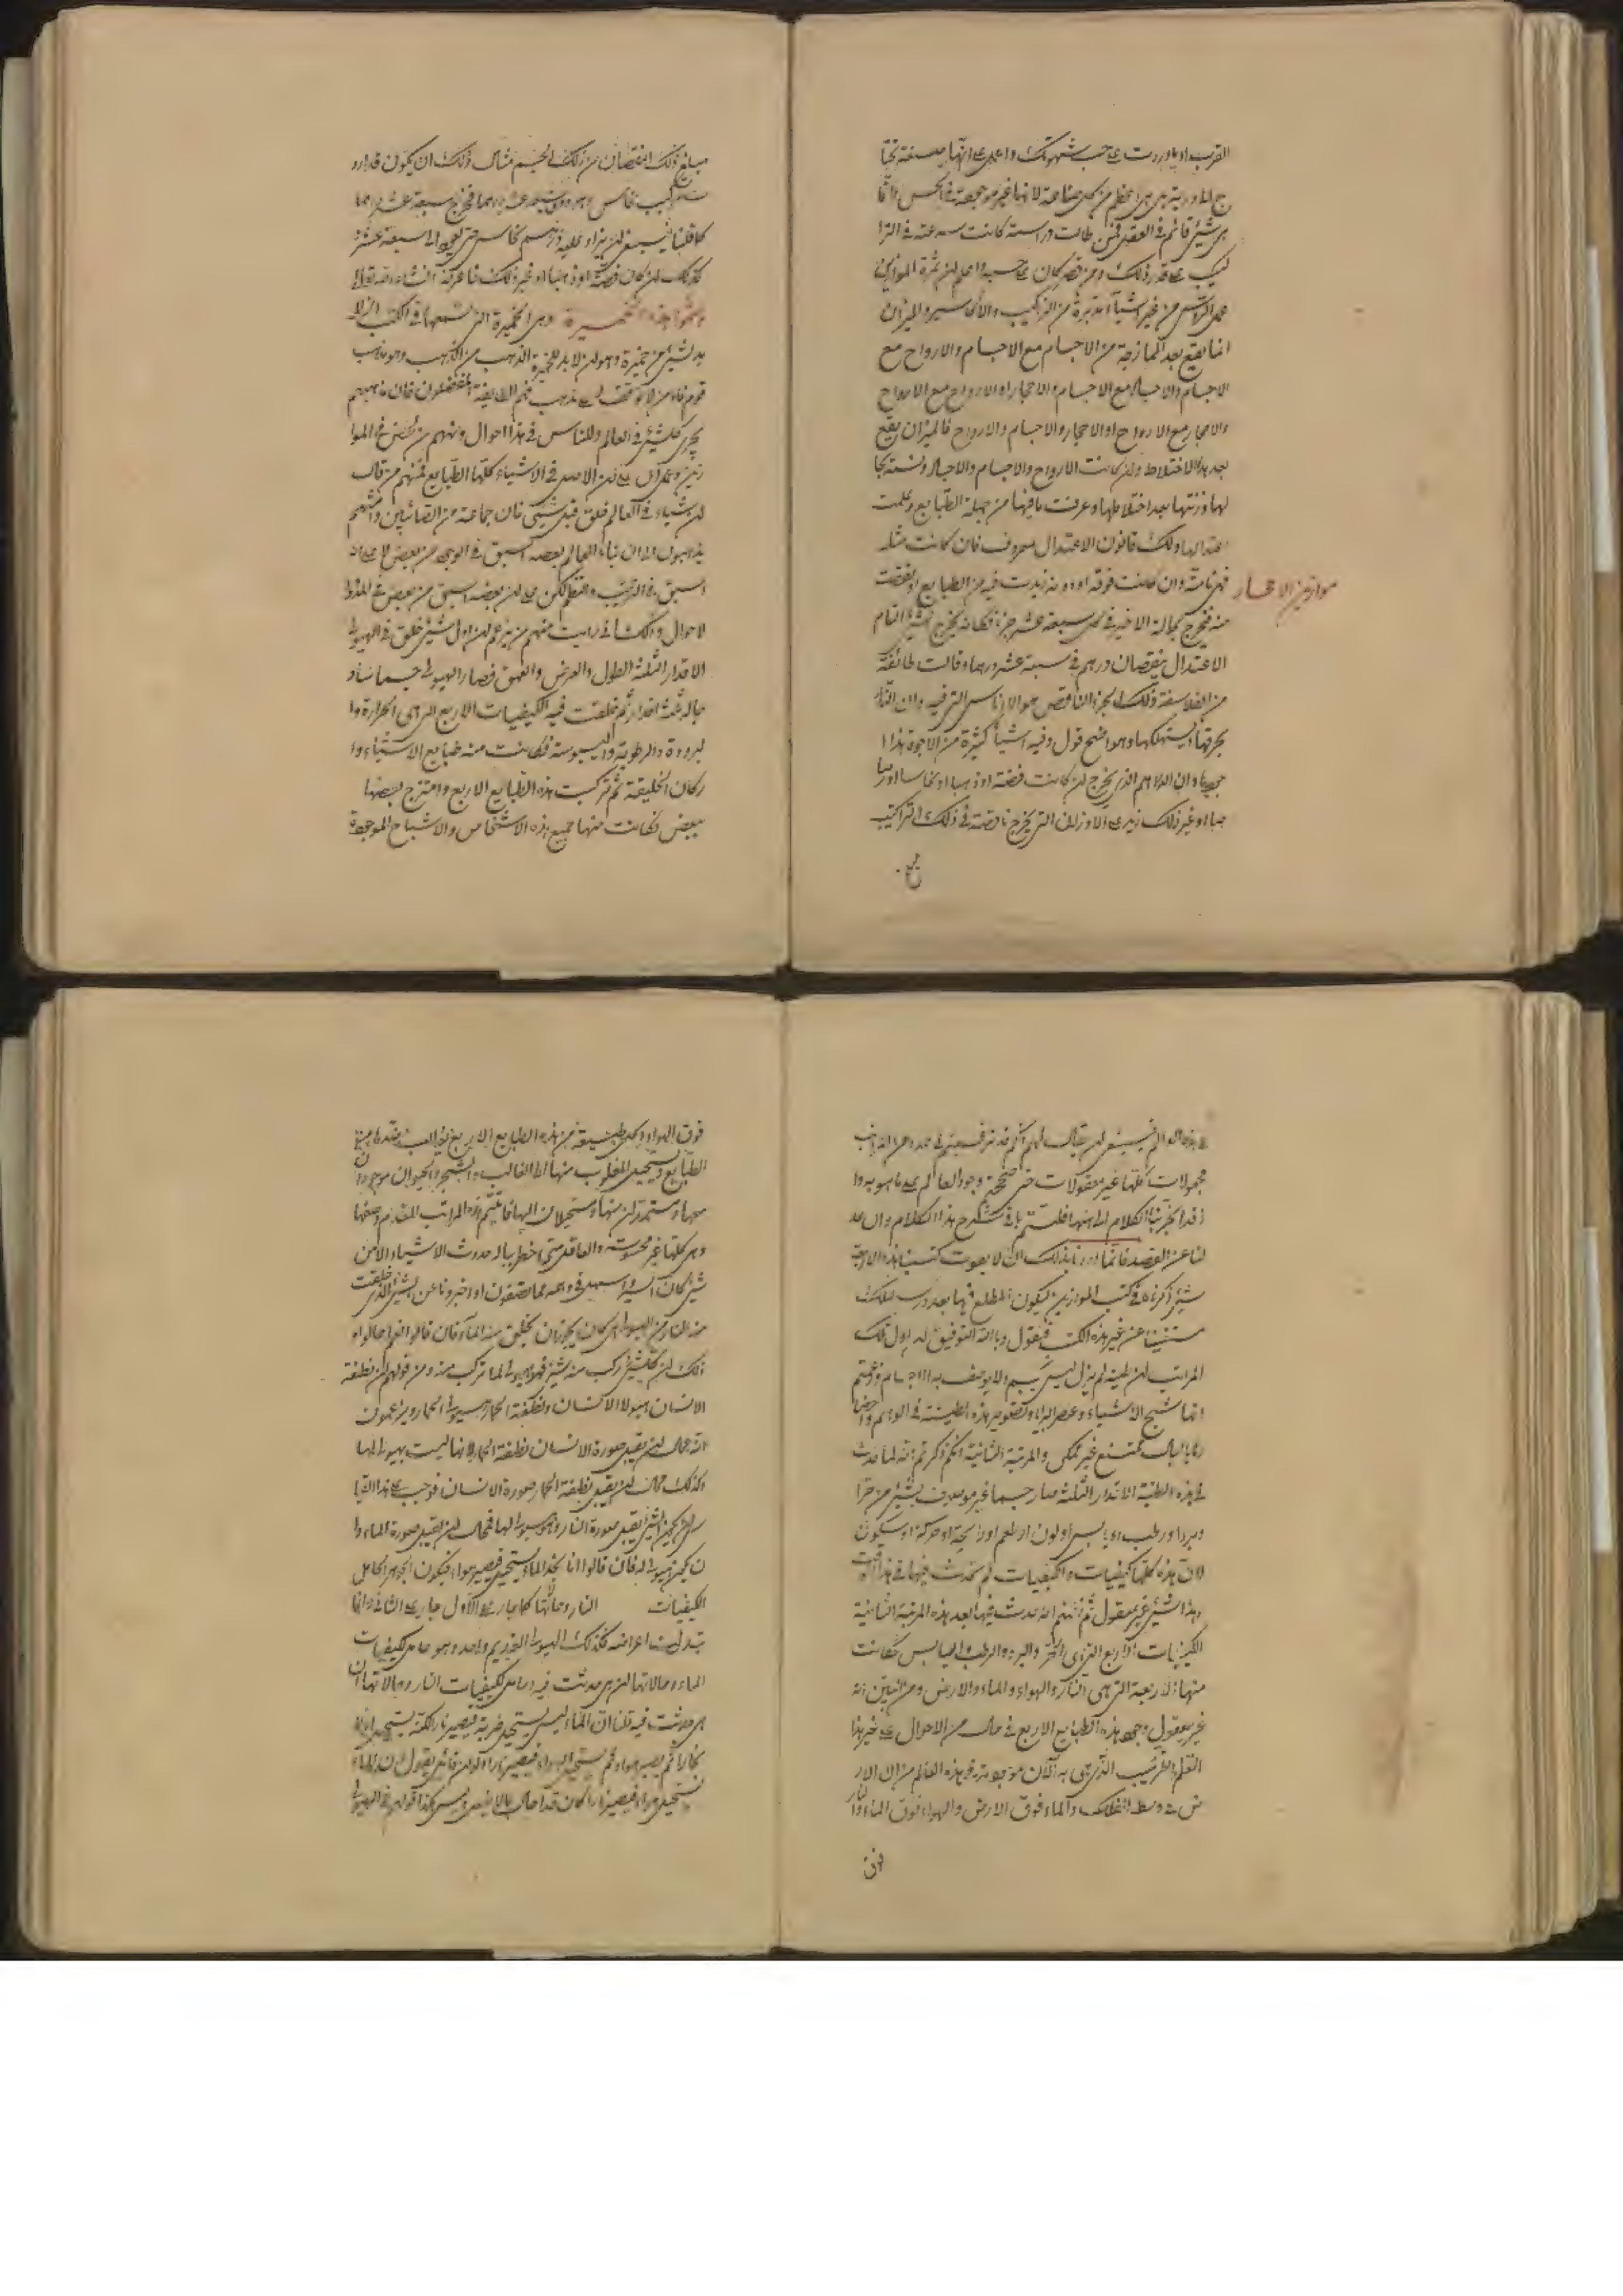 القرب او باوردت على حسب شهوتك واعلم على انها صنعة تحتا
ج الى دربة هى اعظم من كل صناعة لانها غير موجودة فى الحس وانما
هى شئ قائم فى العقل فمن طالت دراسته كانت سرعته فى الترا
كيب على قدر ذلك ومن قصر كان على حسبه واعلم ان ثمرة الموازين
عمل من غير اشياء مدبرة من التراكيب والاكاسير والميزان
انما يقع بعد الممازجة من الاجسام مع الاجسام والارواح مع
الاجسام والاحجار مع الاجسام والاحجار او الارواح مع الارواح
والاحجار مع الارواح او الاحجار والاجسام والارواح فالميزان يقع
بعد هذا الاختلاط وان كانت الارواح والاجسام والاحجار
لها وزنتها بعد اختلاطها وعرفت ما فيها من جملة الطبايع وعلمت
ولك قانون الاعتدال معروف فان كانت مثله
فهى تامة وان كانت فوقه او دونه زيدت فيه من الطبايع او نقصت
موازين الاحجار
منه فتخرج كحالة الاخير فى كل سبعة عشر جزءا فكانه يخرج الشئ التام
الاعتدال ينقصان درهم فى سبعة عشر درهما وقالت طائفة
من الفلاسفة ذلك الجزء الناقص هو الادناس التى فيه وان النار
يحرقها ويستهلكها وهو اضح قول وفيه اشياء كثيرة من الاجوبة هذا ا
وان الدراهم الذى يخرج ان كانت فضة او ذهبا او نحاسا او رصا
صا او غير ذلك زيد على الاوزان التى يخرج ناقصة فى ذلك التراكيب
مبلغ ذلك النقصان من ذلك الجسم مثال ذلك ان يكون قد ارد
تركيب نحاس وهو وزن سبعة عشر درهما فخرج سبعة عشر درهما
كما قلنا فينبغى ان يزاد عليه درهم نحاس حتى يعود الى سبعة عشر
كذلك ان كان فضة او ذهبا او غير ذلك فاعرفه ان شاء الله تعالى
وسموا هذه الخميرة وهى الخميرة التى تسمعها فى الكتب انه لا
بد لشئ من خميرة وهو ان لا بد لخميرة الذهب من الذهب وهو مذهب
قوم
يجرى كل شئ فى العالم وللناس فى هذا احوال ومنهم من فى الموا
زين وعمل على ان الاصل فى الاشياء كلها الطبايع فمنهم من قال
ان شياء فى العالم خلق قبل شئ فان جماعة من الصائبين واشبههم
يذهبون الى ان بناء العالم بعضه اسبق فى الوجود من بعض لا على انه
اسبق فى الترتيب والنظم لكن على ان بعضه اسبق من بعض
لاحوال وذلك انى رايت منهم من يزعم ان اول شئ خلق فى الهيولى
الاقدار الثلثة الطول والعرض والعمق فصار الهيولى جسما
ثم خلقت فيه الكيفيات الاربع التى هى الحرارة وا
لبرودة والرطوبة واليبوسة فكانت منه طبايع الاشياء وا
ركان الخليقة ثم تركبت هذه الطبايع الاربع وامتزج بعضها
ببعض وكانت منها جميع هذه الاشخاص والاشباح الموجودة
فى هذه العالم فينبغى ان يقال لهم انكم قد
مجهولات كلها غير معقولات حتى صححتم وجود العالم على ما هو به وا
ذ قد انتهى بنا الكلام الى ههنا فلنتم باقى شرح هذا الكلام وان عد
لنا عن القصد فانما اردنا بذلك ان لا يفوت كتبنا هذه الاربعة
شئ ذكرناه فى كتب الموازين ليكون المطلع فيها بعد درسه لذلك
مستغنيا عن غير هذه الكتب فنقول وبالله التوفيق ان اول تلك
المراتب ان طينة لم يزل ليس بجسم ولا يوصف به الاجسام وزعمتم
انها شبح الاشياء وعنصر البراء وتصوير هذه الطينة فى الوهم واحضا
رها بالبال ممتنع غير ممكن والمرتبة الثانية انكم ذكرتم انه لما حدث
فى هذه الطينة الاقدار الثلثة صار جسما غير موصوف بشئ من حر ا
وبرد او رطب او يابس او لون او طعم او رايحة او حركة او سكون
لان هذه كلها كيفيات والكيفيات لم تحدث فيها فى هذا الوقت
وهذا الشئ غير معقول ثم زعمتم انه حدث فيها بعد هذه المرتبة الثانية
الكيفيات الاربع التى هى الحر والبرد والرطب واليابس فكانت
منها الاربعة التى هى النار والهواء والماء والارض ومن البين انه
غير معقول وجود هذه الطبايع الاربع فى حال من الاحوال على غير هذا
النظم والترتيب الذى هى به الآن موجودة فى هذه العالم من ان الار
ض فى وسط الفلك والماء فوق الارض والهواء فوق الماء والنار
فوق الهواء وكل طبيعة من هذه الطبايع الاربع
الطبايع ويستحيل المغلوب منها الى الغالب والشجر والحيوان موجودان
معها ومستمدان منها ومستحيلان اليها فاتيتم بهذه المراتب المقدم وصفها
وهى كلها غير محسوسة والعاقل متى اخطر بباله حدوث الاشياء لا من
شئ كان ايسر واسهل فى وهمه مما تصفون او اخبرونا عن الشئ الذى خلقت
منه النار من الهيولى هل كان يجوز ان يخلق منه الماء فان قالوا نعم احالوا و
ذلك ان كل شئ ركب منه شئ فهو هيولى لما تركب منه ومن قولهم ان نطفة
الانسان هيولا الانسان ونطفة الحمار هيولى الحمار ويزعمون
انه محال ان يقبل صورة الانسان نطفة الحمار لانها ليست بهيولى لها
وكذلك محال ان يقبل نطفة الحمار صورة الانسان فوجب على هذا القيا
س ان يكون الشئ يقبل صورة النار وهو هيولى لها فمحال ان يقبل صورة الماء وا
ن يكون هيولى له فان قالوا انا نجد الماء يستحيل فيصير هواء فيكون الجوهر الحامل
لكيفيات النار وحالاتها كلها جار على الاول جار على الثانى وانما
تبدلت اعراضه فكذلك الهيولى القديم واحد وهو حامل كيفيات
الماء وحالاتها التى حدثت فيه وحامل كيفيات النار وحالاتها ان
هى حدثت فيه قلنا ان الماء ليس يستحيل ضربة فيصير نارا لكنه يستحيل اولا
بخارا ثم يصير هواء ثم يستحيل الهواء فيصير نارا ولو ان قائلا يقول ان الماء
يستحيل فيصير نارا لكان قد احال وليس كذا قولهم فى الهيولى